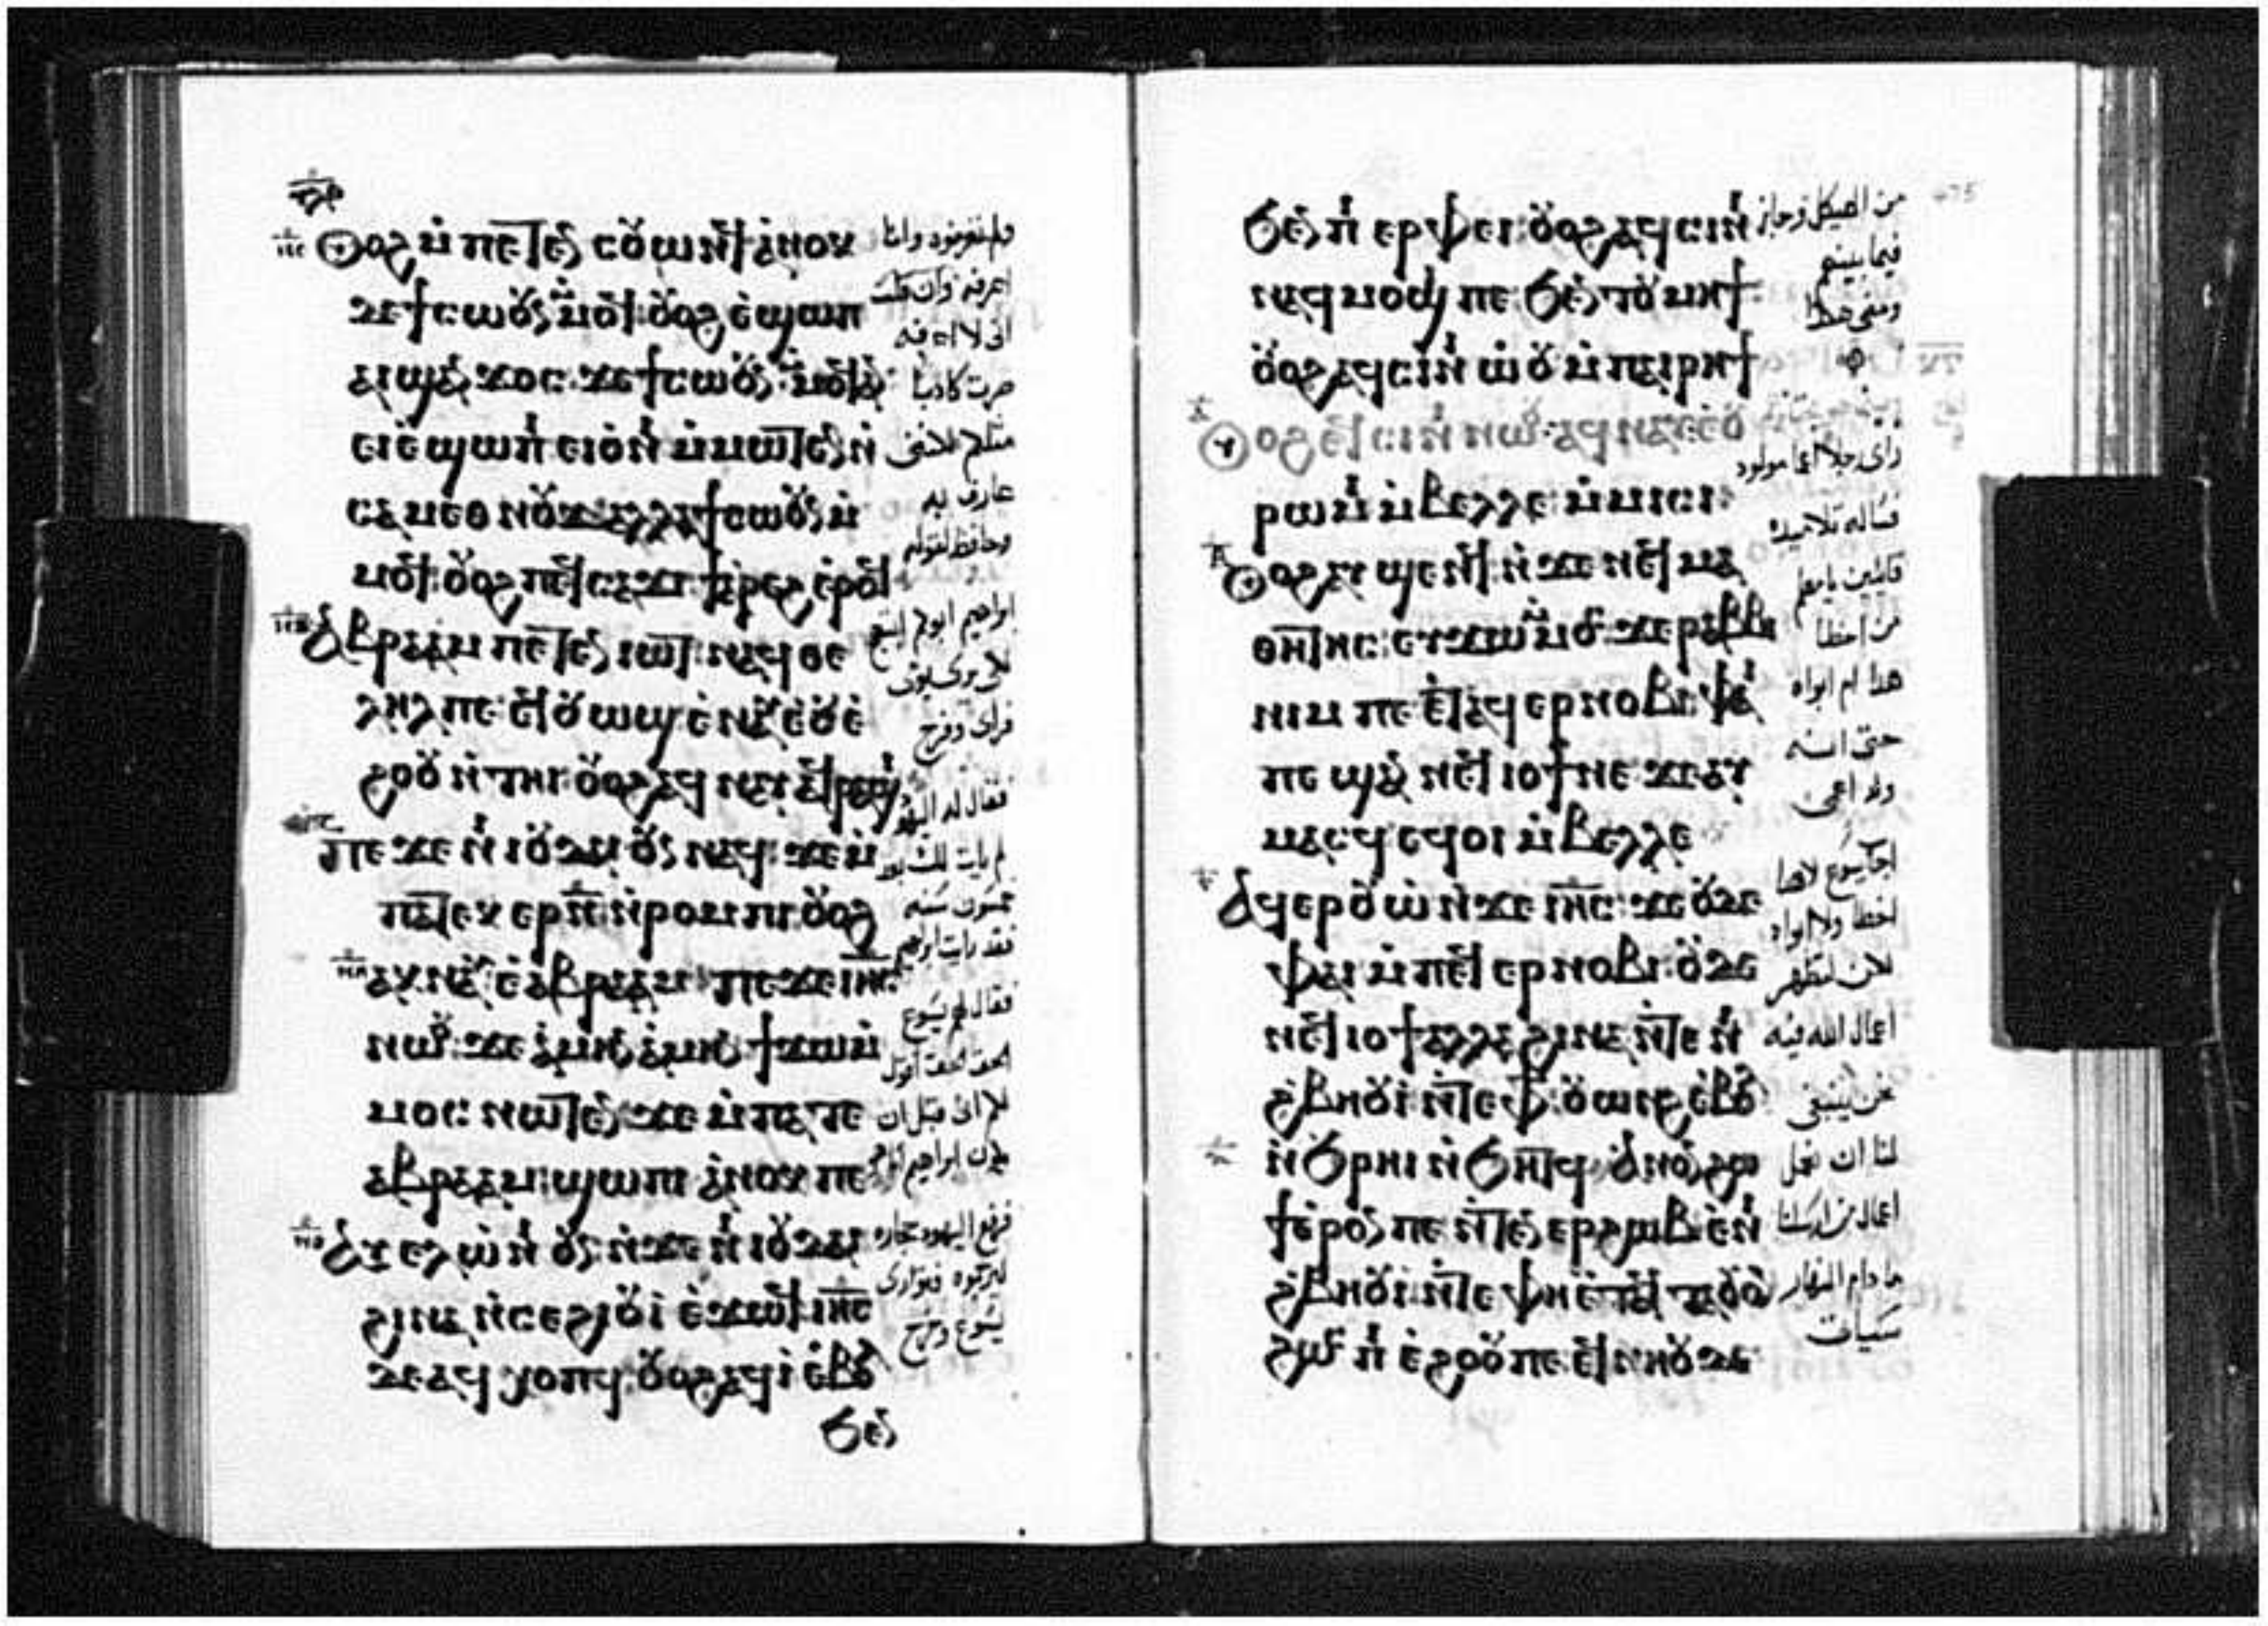 ⲟⲩⲟϩ ⲙ̀ⲡⲉⲧⲉⲛ ⲥⲟⲩⲱⲛϥ ⲁⲛⲟⲕ
ⲇⲉ ϯⲥⲱⲟⲩⲛ ⲙ̀ⲙⲟϥ ⲟⲩⲟϩ ⲉ̀ϣⲱⲡ
ⲁⲓϣⲁⲛ ϫⲟⲥ ϫⲉ ϯⲥⲱⲟⲩⲛ ⲙ̀ⲙⲟϥ ⲁⲛ
ⲉⲓⲉ̀ϣⲱⲡⲓ ⲉⲓⲟ̀ⲛⲓ ⲙ̀ⲙⲱⲧⲉⲛ ⲛ̀
ⲥⲁⲙⲉⲑⲛⲟⲩϫ ⲁⲗⲗⲁ ϯⲥⲱⲟⲩⲛ ⲙ̀
ⲙⲟϥ ⲟⲩⲟϩ ⲡⲉϥⲥⲁϫⲓ ϯⲁ̀ⲣⲉϩ ⲉ̀ⲣⲟϥ
ⲁⲃⲣⲁⲁⲙ ⲡⲉⲧⲉⲛ ⲓⲱⲧ ⲛⲁϥⲑⲉ
ⲗⲏⲗ ⲡⲉ ⲉϥⲟⲩⲱϣ ⲉ̀ⲛⲁⲩ ⲉ̀ⲟⲩⲉ̀
ϩⲟⲟⲩ ⲛ̀ⲧⲏⲓ ⲟⲩⲟϩ ⲁϥⲛⲁⲩ ⲁϥⲣⲁϣⲓ
ⲡⲉϫⲉ ⲛⲓⲓⲟⲩⲇⲁⲓ ⲟⲩⲛ ⲛⲁϥ ϫⲉ ⲙ̀
ⲡⲁⲧⲉⲕ ⲉⲣ ⲛ̅ ⲛ̀ⲣⲟⲙⲡⲓ ⲟⲩⲟϩ
ⲁⲕⲛⲁⲩ ⲉ̀ⲁⲃⲣⲁⲁⲙ ⲡⲉϫⲉ ⲓⲏ̅ⲥ̅
ⲛⲱⲟⲩ ϫⲉ ⲁ̀ⲙⲏⲛ ⲁ̀ⲙⲏⲛ ϯϫⲱ ⲙ̀
ⲙⲟⲥ ⲛⲱⲧⲉⲛ ϫⲉ ⲙ̀ⲡⲁⲧⲉ
ⲁⲃⲣⲁⲁⲙ ϣⲱⲡⲓ ⲁ̀ⲛⲟⲕ ⲡⲉ
ⲁⲩⲉⲗ ⲱ̀ⲛⲓ ⲟⲩⲛ ⲛ̀ϫⲉ ⲛⲓⲓⲟⲩⲇⲁⲓ
ϩⲓⲛⲁ ⲛ̀ⲥⲉϩⲓⲟⲩⲓ̀ ⲉ̀ϫⲱϥ ⲓⲏ̅ⲥ̅
ⲇⲉ ⲁϥⲭⲟⲡϥ ⲟⲩⲟϩ ⲁϥⲓ̀ ⲉ̀ⲃⲟⲗ
ϧⲉⲛ
فلم تعرفوه وانا
اعرفه وان قلت
انى لا اعرفه
صرت كاذبا
مثلكم لاننى
عارف به
وحافظ لقوله
ابراهيم ابوكم ابتهج
فراى وفرح
فقال له اليهود
لم يات لك بعد
خمسون سنه
فقد رايت ابراهيم
فقال لهم يسوع
الحق الحق اقول
لكم انى قبل ان
يكون ابراهيم انا هو
فرفع اليهود حجاره
ليرجموه فتوارى
يسوع وخرج
ϧⲉⲛ ⲡⲓⲉⲣⲫⲉⲓ ⲟⲩⲟϩ ⲁϥⲥⲓⲛⲓ
ⲛⲁϥⲙⲟϣⲓ ⲡⲉ ϧⲉⲛ ⲧⲟⲩⲙⲏϯ
ⲟⲩⲟϩ ⲁϥⲥⲓⲛⲓ ⲱ̀ⲟⲩ ⲙ̀ⲡⲁⲓⲣⲏϯ
ⲟⲩⲟϩ ⲉϥⲥⲓⲛⲓⲱⲟⲩ ⲁϥⲛⲁⲩ ⲉ̀ⲟⲩ
ⲣⲱⲙⲓ ⲙ̀ⲃⲉⲗⲗⲉ ⲙ̀ⲙⲓⲥⲓ
ⲟⲩⲟϩ ⲁⲩϣⲉⲛϥ ⲛ̀ϫⲉ ⲛⲉϥⲙⲁ
ⲑⲏⲧⲏⲥ ⲉⲩϫⲱ ⲙ̀ⲙⲟⲥ ϫⲉ ⲣⲁⲃⲃⲓ
ⲛⲓⲙ ⲡⲉ ⲉ̀ⲧⲁϥ ⲉⲣⲛⲟⲃⲓ ⲫⲁⲓ
ⲡⲉ ϣⲁⲛ ⲛⲉϥⲓⲟϯ ⲛⲉ ϫⲉ ⲁⲩ
ⲙⲁⲥϥ ⲉϥⲟⲓ ⲙ̀ⲃⲉⲗⲗⲉ
ⲁϥⲉⲣⲟⲩⲱ̀ ⲛ̀ϫⲉ ⲓⲏ̅ⲥ̅ ϫⲉ ⲟⲩⲇⲉ
ⲫⲁⲓ ⲙ̀ⲡⲉϥ ⲉⲣⲛⲟⲃⲓ ⲟⲩⲇⲉ
ⲛⲉϥⲓⲟϯ ⲁⲗⲗⲁ ϩⲓⲛⲁ ⲛ̀ⲧⲉ ⲛⲓ
ϩⲃⲏⲟⲩⲓ̀ ⲛ̀ⲧⲉ ⲫϯ ⲟⲩⲱⲛϩ ⲉ̀ⲃⲟⲗ
ⲛ̀ϧⲣⲏⲓ ⲛ̀ϧⲏⲧϥ ⲁⲛⲟⲛ ϩⲱ
ϯ ⲉ̀ⲣⲟⲛ ⲡⲉ ⲛ̀ⲧⲉⲛ ⲉⲣϩⲱⲃ ⲉ̀ⲛⲓ
ϩⲃⲏⲟⲩⲓ̀ ⲛ̀ⲧⲉ ⲫⲏ ⲉ̀ⲧⲁϥⲧⲁⲟⲩⲟⲓ
ϩⲱⲥ ⲡⲓⲉ̀ϩⲟⲟⲩ ⲡⲉ ϥⲛⲏⲟⲩ ϫⲉ
من الهيكل وجاز
فيما بينهم
ومضى هكذا
راى رجلا اعما مولود
فساله تلاميذه
قايلين يا معلم
من اخطا
هذا ام ابواه
حتى انه
ولد اعمى
اجاب يسوع لا هذا
اخطا ولا ابواه
لاكن لتظهر
اعمال الله فيه
نحن ينبغى
لنا ان نعمل
اعمال من ارسلنا
ما دام النهار
سيات